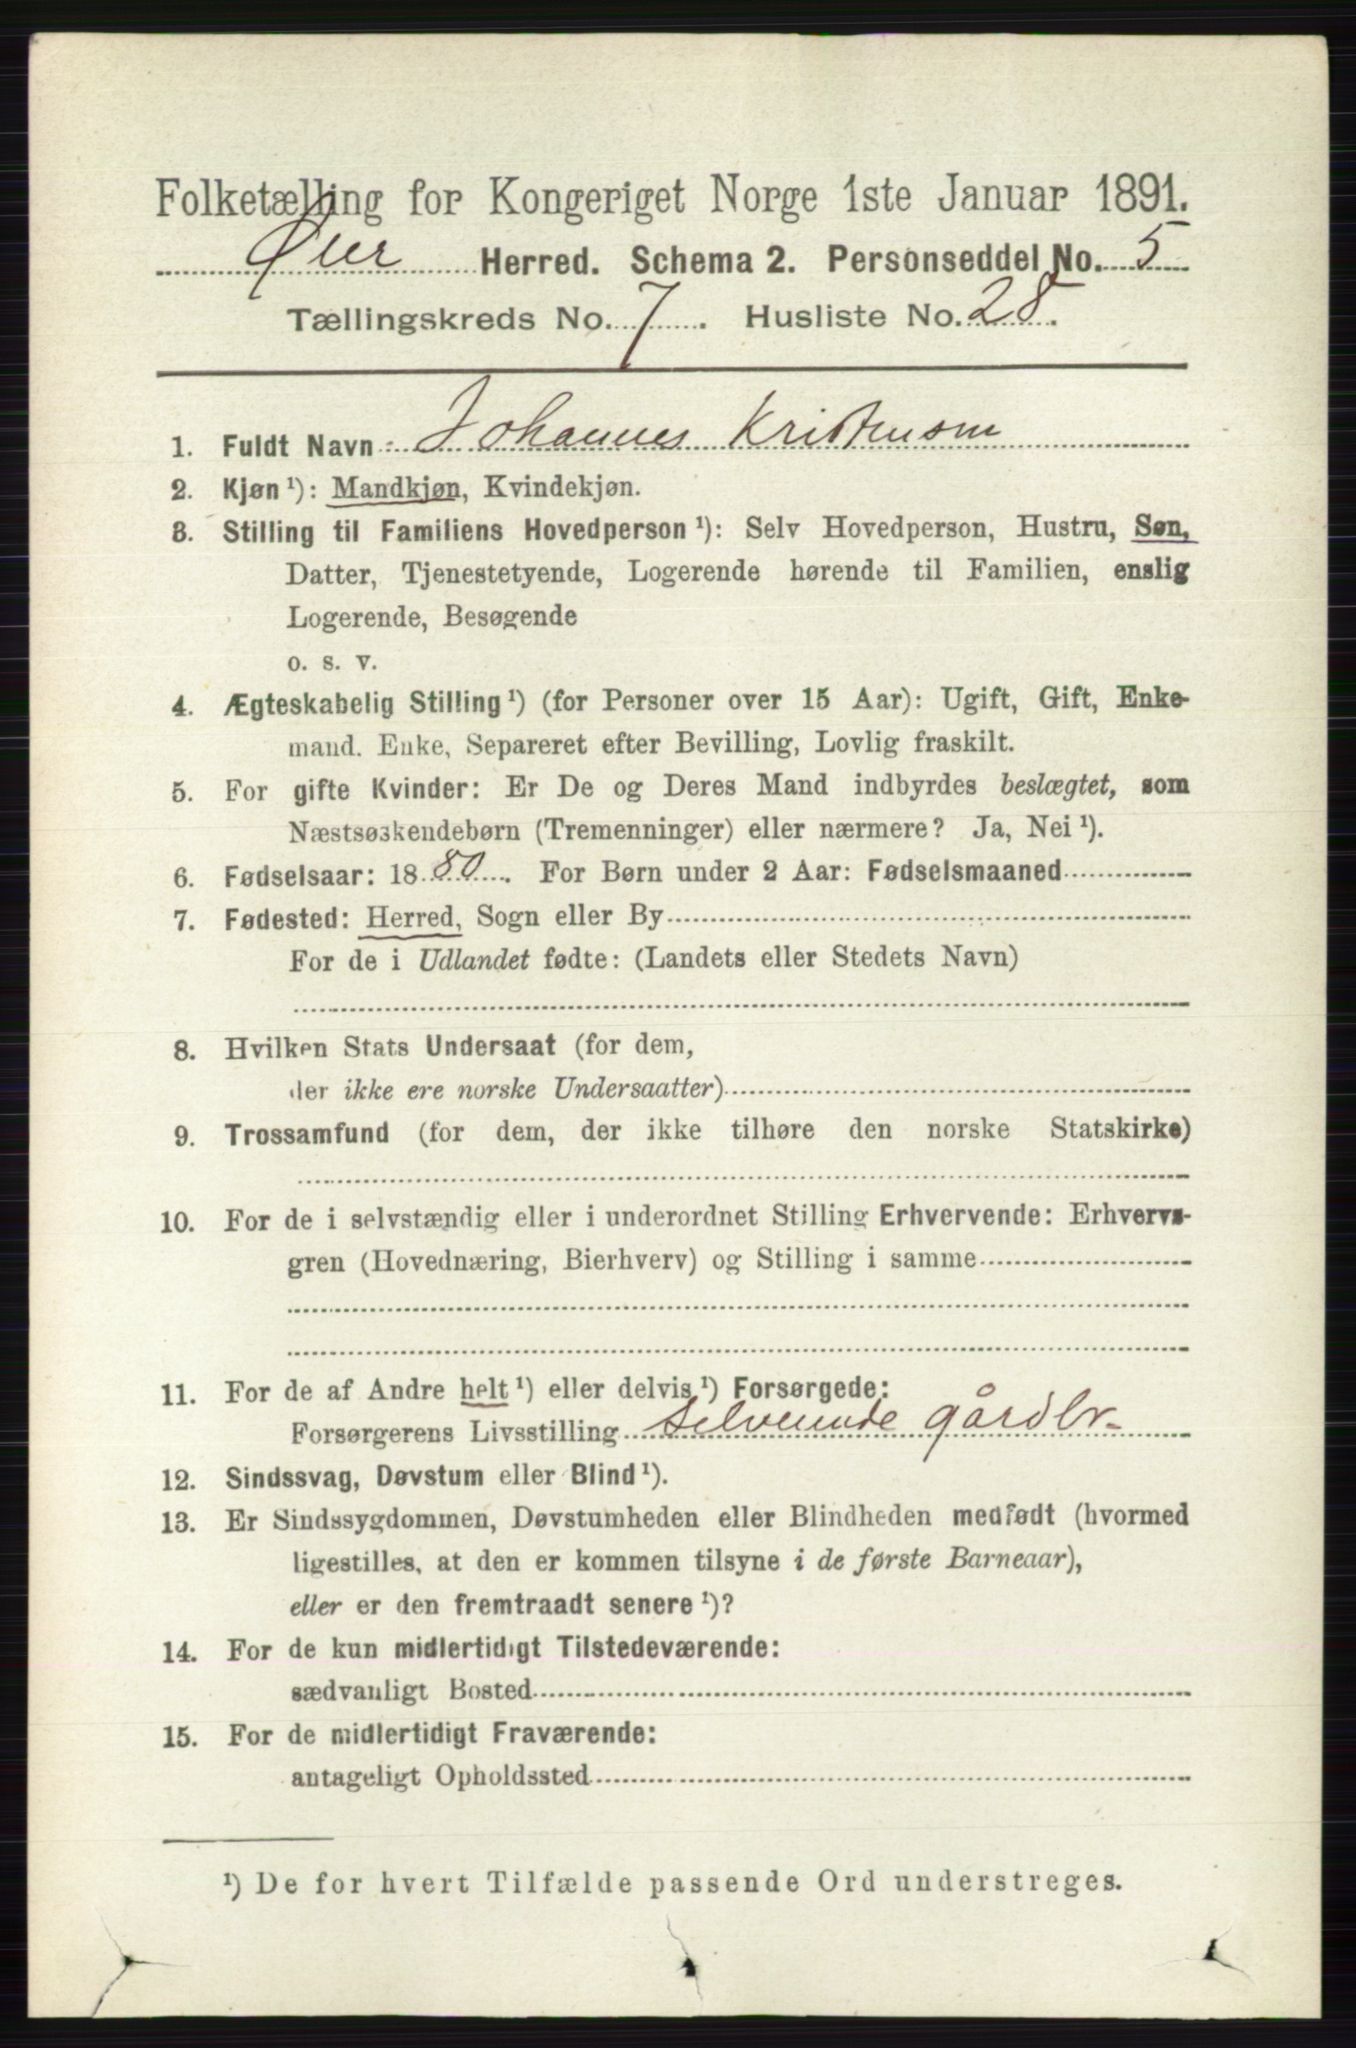 Folketælling for Kongeriget Norge 1ste Januar 1891.
Øier Herred. Schema 2. Personseddel No. 5
Tællingskreds No. 7. Husliste No. 28.
1. Fuldt Navn Johannes Kristenson
2. Kjøn¹): Mandkjøn, Kvindekjøn.
3. Stilling til Familiens Hovedperson¹): Selv Hovedperson, Hustru, Søn,
Datter, Tjenestetyende, Logerende hørende til Familien, enslig
Logerende, Besøgende
o. s. v.
4. Ægteskabelig Stilling¹) (for Personer over 15 Aar): Ugift, Gift, Enke-
mand. Enke, Separeret efter Bevilling, Lovlig fraskilt.
5. For gifte Kvinder: Er De og Deres Mand indbyrdes beslægtet, som
Næstsøskendebørn (Tremenninger) eller nærmere? Ja, Nei¹).
6. Fødselsaar: 1880. For Børn under 2 Aar: Fødselsmaaned
7. Fødested: Herred, Sogn eller By
For de i Udlandet fødte: (Landets eller Stedets Navn)
8. Hvilken Stats Undersaat (for dem,
der ikke ere norske Undersaatter)
9. Trossamfund (for dem, der ikke tilhøre den norske Statskirke)
10. For de i selvstændig eller i underordnet Stilling Erhvervende: Erhvervs-
gren (Hovednæring, Bierhverv) og Stilling i samme
11. For de af Andre helt¹) eller delvis¹) Forsørgede:
Forsørgerens Livsstilling selveiende gårdbr-
12. Sindssvag, Døvstum eller Blind¹).
13. Er Sindssygdommen, Døvstumheden eller Blindheden medfødt (hvormed
ligestilles, at den er kommen tilsyne i de første Barneaar),
eller er den fremtraadt senere¹)?
14. For de kun midlertidigt Tilstedeværende:
sædvanligt Bosted
15. For de midlertidigt Fraværende:
antageligt Opholdssted
¹) De for hvert Tilfælde passende Ord understreges.